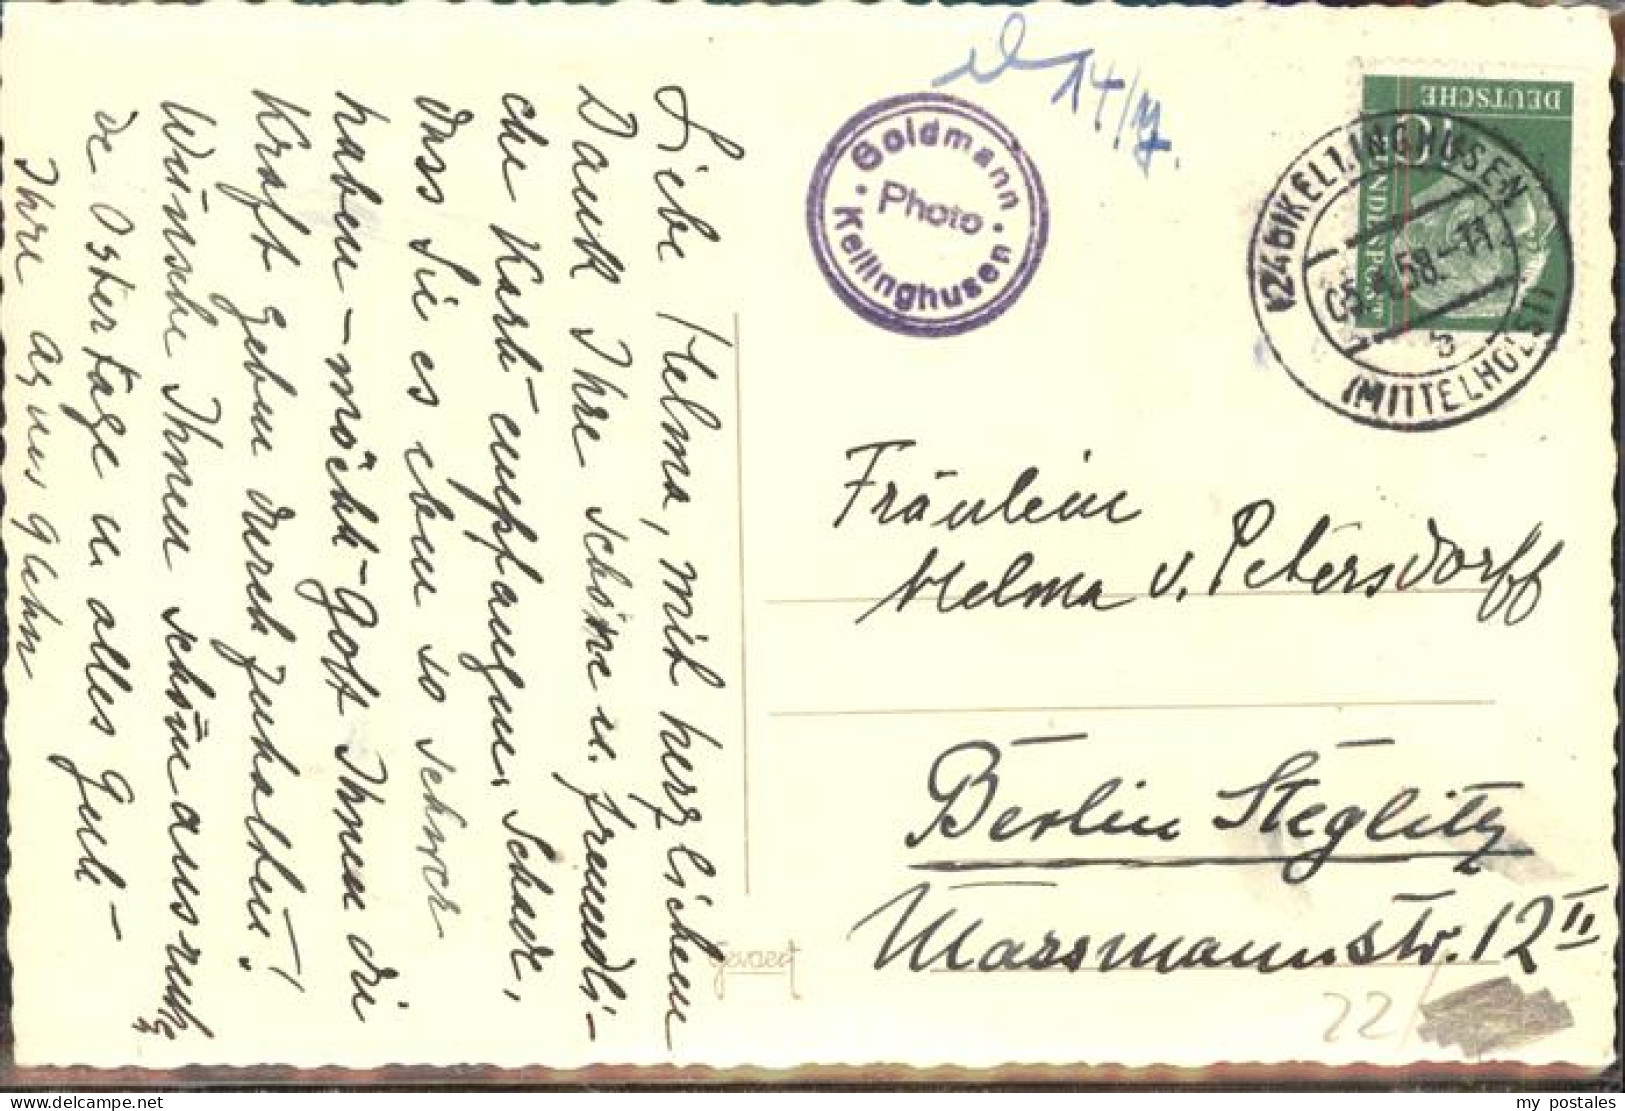 Liebe Helma, mit herzlichem
Dank Ihre schöne u. freundli-
che Karte empfangen. Schade,
dass Sie es eben so schwer
haben - möchte Gott Ihnen die
Kraft geben durchzuhalten!
Wünsche Ihnen schöne ausruh-
de Ostertage u alles Gute -
Ihre Agnes
14/4.
Goldmann
Photo
Kellinghusen
DEUTSCHE
10
BUNDESPOST
(24b) KELLINGHUSEN
58.-11
b
(MITTELHOLST)
Fräulein
Helma v. Petersdorff
Berlin Steglitz
Massmannstr. 12 II
Gevaert
22/
my postales